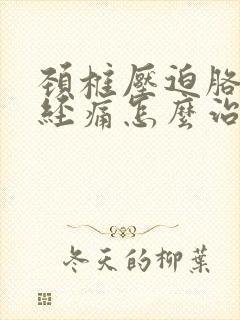 頚椎壓迫胳
經痛怎麼治
冬天的柳葉